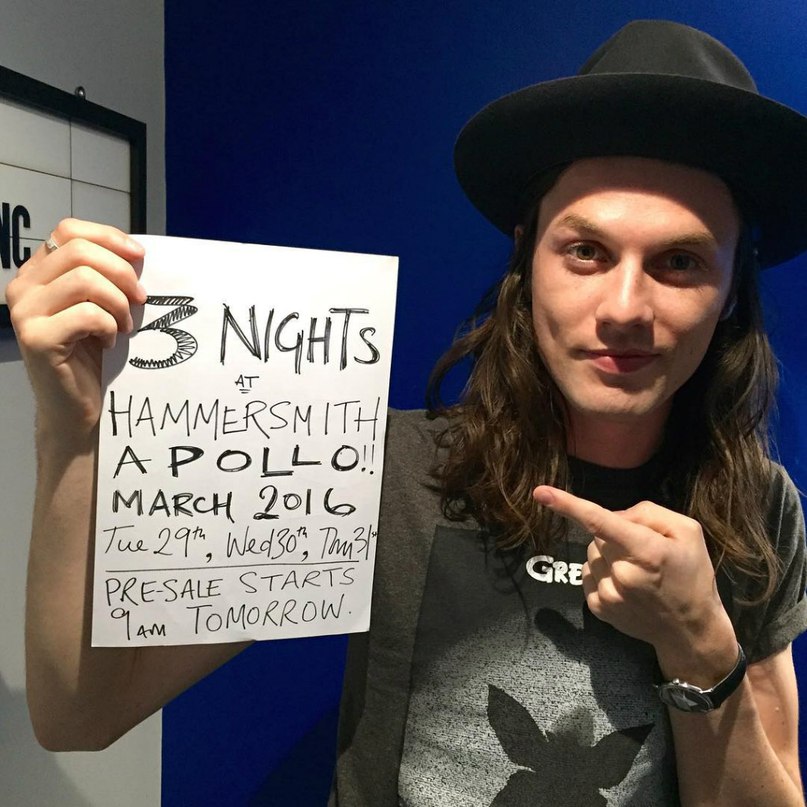 NC
3 NIGHTS
AT
HAMMERSMITH
APOLLO!!
MARCH 2016
Tue 29th, Wed 30th, Thu 31st
PRE-SALE STARTS
9AM TOMORROW.
GRE